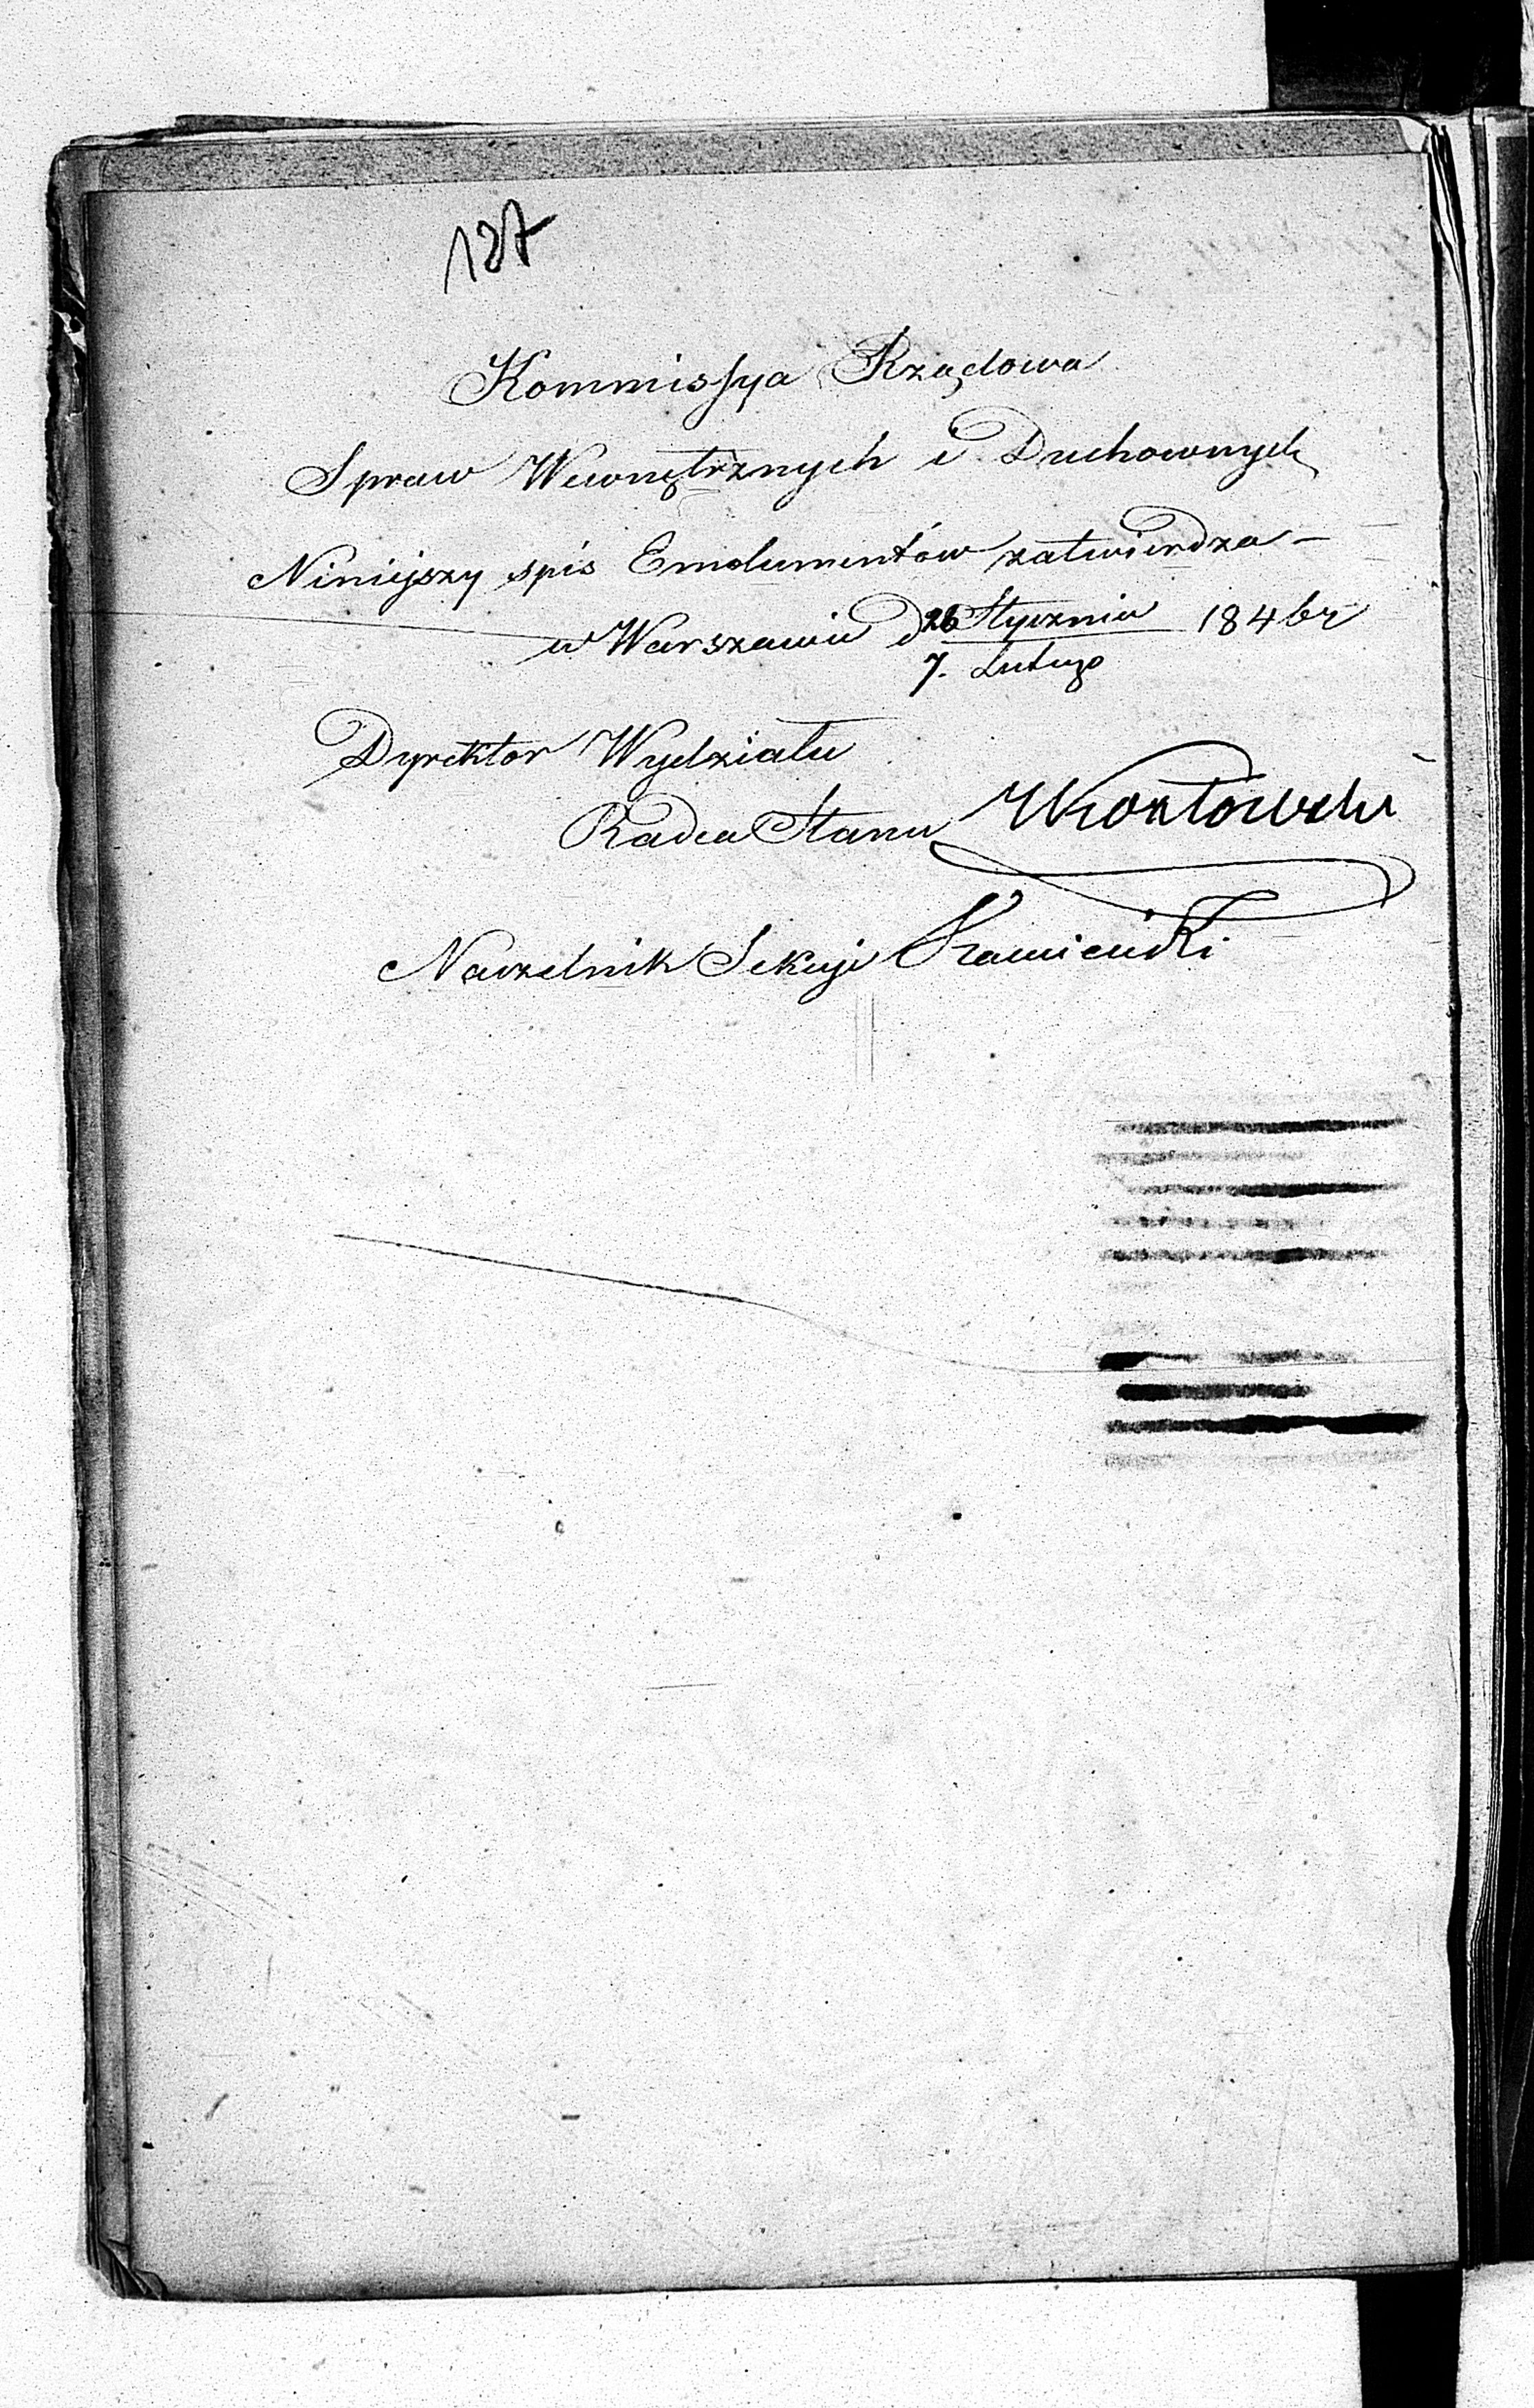 137
Kommissya Rządowa
Spraw Wewnętrznych i Duchownych
Niniejszy spis Emolumentów zatwierdza –
w Warszawie d 26 Stycznia 1846 r
7. Lutego
Dyrektor Wydziału
Radca Stanu Kozłowski
Naczelnik Sekcji